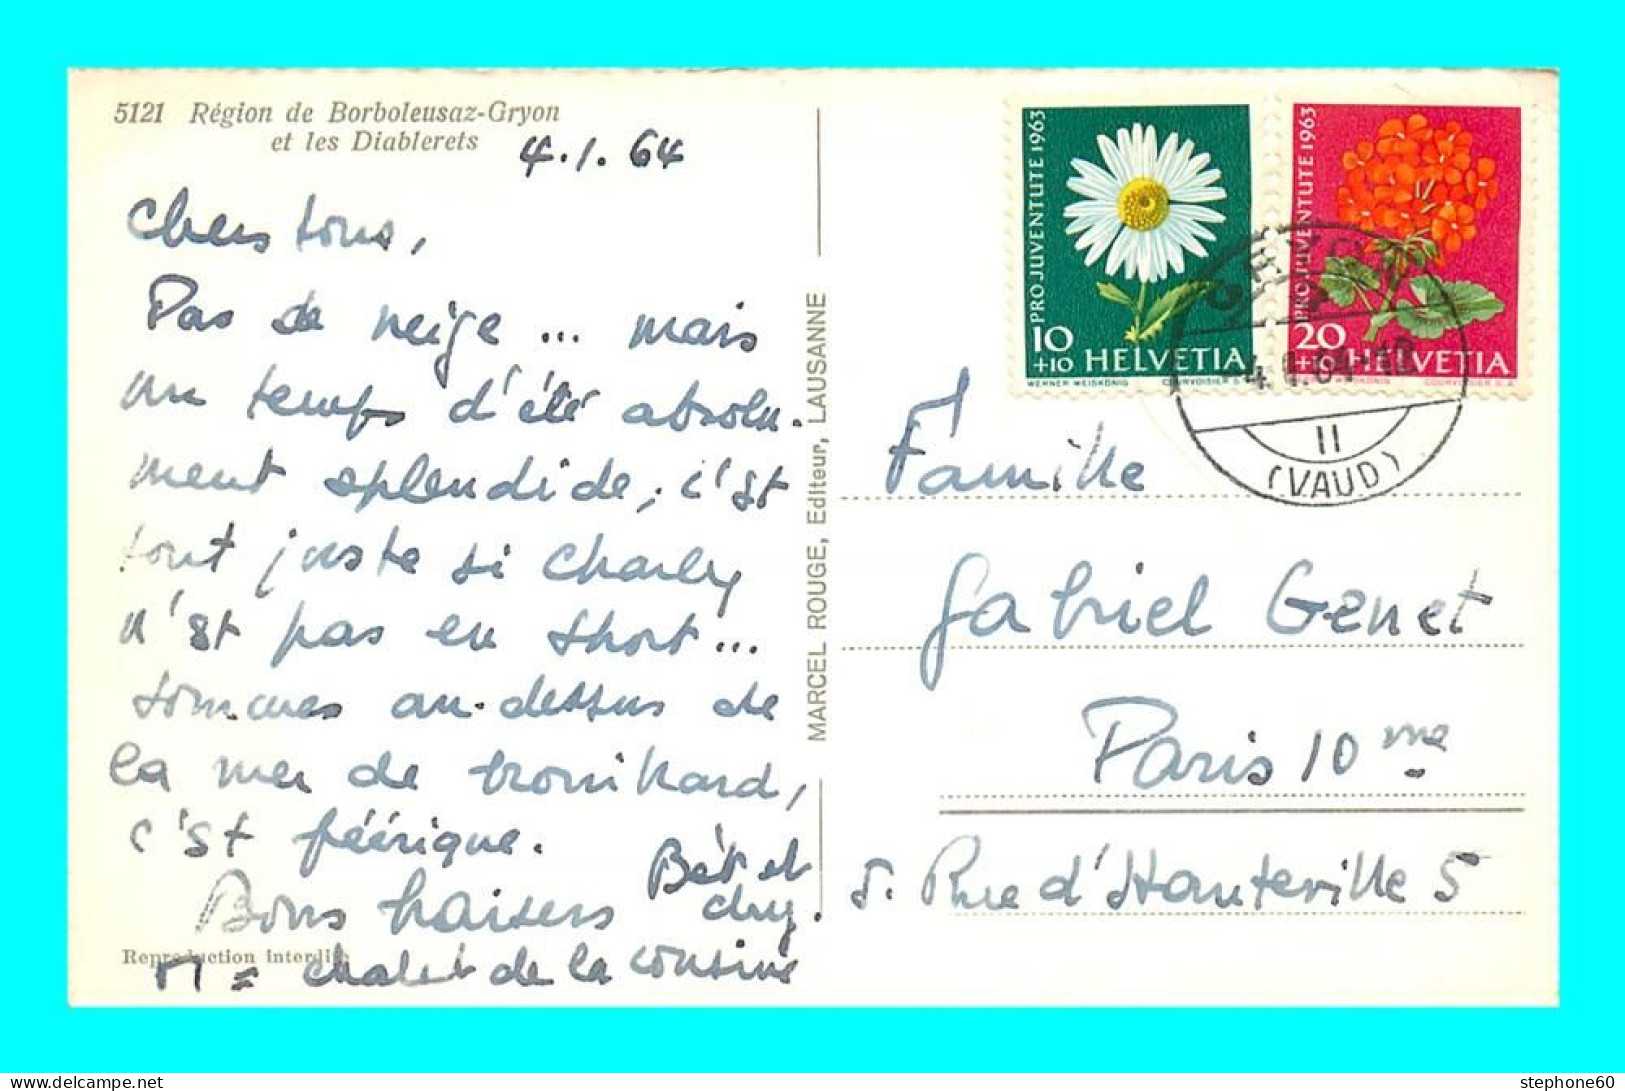 5121 Région de Borboleusaz-Gryon
et les Diablerets
4.1.64
Chers tous,
Pas de neige ... mais
un temps d'été absolu-
ment splendide, c'est
tout juste si Charly
n'est pas en short...
sommes au-dessus de
la mer de brouillard,
c'est féérique.
Bons baisers
Bét et
chy.
= chalet de la cousine
Reproduction interdite
MARCEL ROUGE, Editeur, LAUSANNE
PRO JUVENTUTE 1963
10
+10 HELVETIA
WERNER WEISKÖNIG COURVOISIER S.A.
PRO JUVENTUTE 1963
20
+10 HELVETIA
WERNER WEISKÖNIG COURVOISIER S.A.
4.1.64-10
II
(VAUD)
Famille
Gabriel Genet
Paris 10me
5. Rue d'Hauteville 5
stephone60